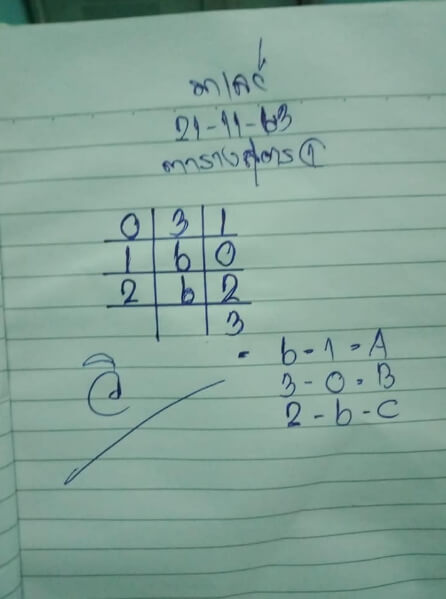 มาเลย์
21-11-63
ตารางสูตร ①
0 3 1
1 6 0
2 6 2
3
6-1=A
3-0=B
2-6-C